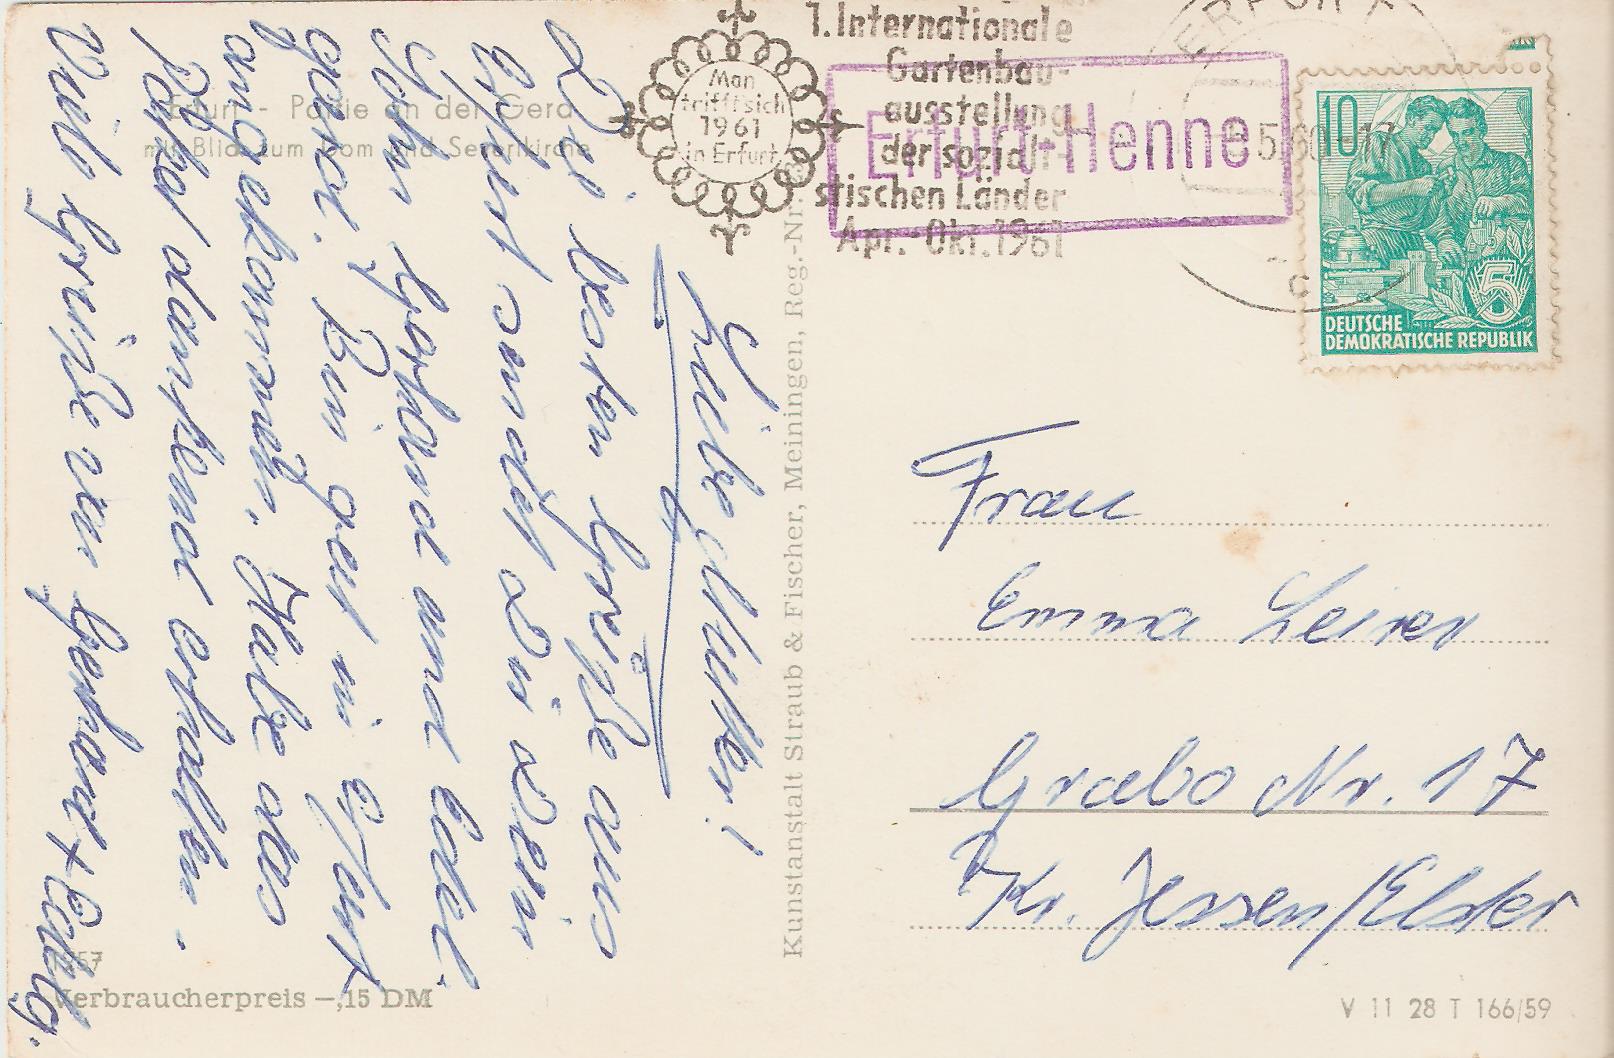 Erfurt - Partie an der Gera
mit Blick zum Dom und Severikirche
Man
trifft sich
1961
in Erfurt
1. Internationale
Gartenbau-
ausstellung
der soziali-
stischen Länder
Apr.-Okt. 1961
Erfurt-Henne
ERFURT
5.60-17
c
10
5
DEUTSCHE
DEMOKRATISCHE REPUBLIK
Liebe Mutter!
Die besten Grüße aus
Erfurt sendet Dir Dein
Sohn Gerhard und Edel
gard. Bin gut in Erfurt
angekommen, Habe das
Paket dankend erhalten.
Viele Grüße von Gerhard + Edelg.
Kunstanstalt Straub & Fischer, Meiningen, Reg.-Nr.
Frau
Emma
Grabo Nr. 17
Kr. Jessen/Elster
Verbraucherpreis —,15 DM
V 11 28 T 166/59